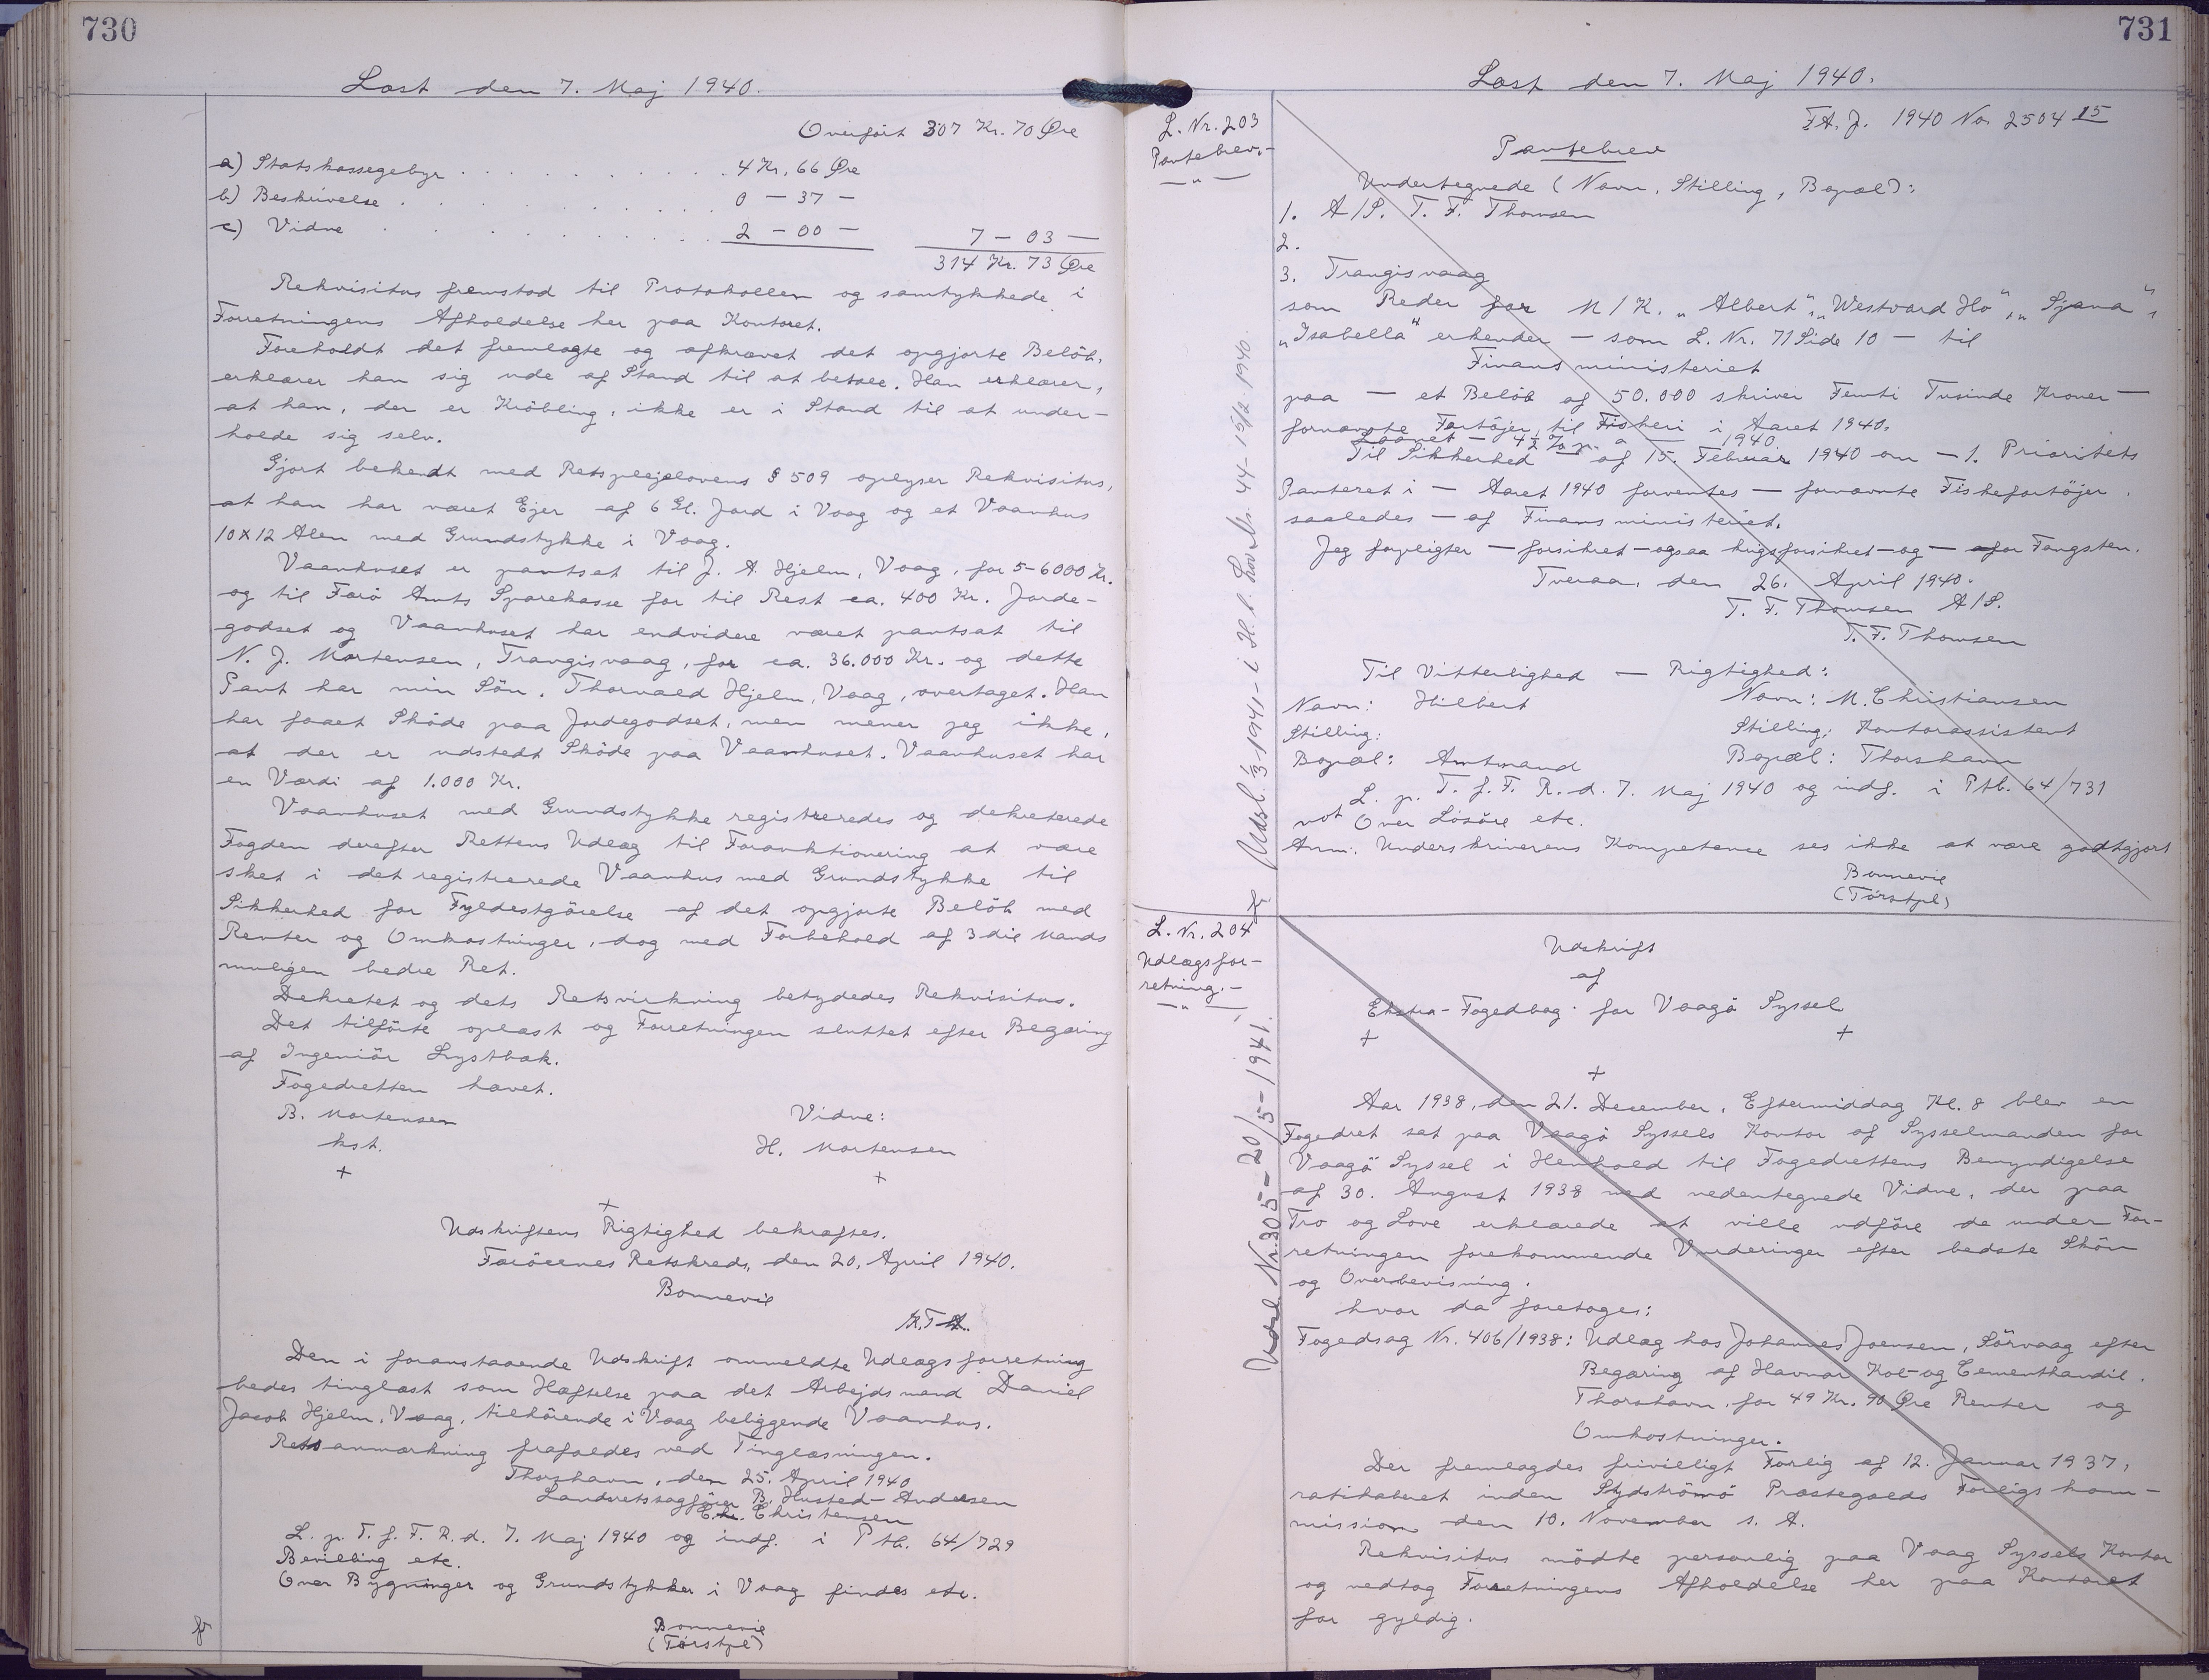 730
Læst den 7. Maj 1940.
Overført 307 Kr. 70 Øre
a) Statskassegebyr . . . . . . . . . . 4 Kr. 66 Øre
b) Beskrivelse . . . . . . . . . . 0 — 37 —
c) Vidne . . . . . . . . . . 2 — 00 — 7 — 03 —
314 Kr. 73 Øre
Rekvisitus fremstod til Protokollen og samtykkede i
Forretningens Afholdelse her paa Kontoret.
Foreholdt det fremlagte og afkrævet det opgjorte Beløb,
erklærer han sig ude af Stand til at betale. Han erklærer,
at han, der er Krøbling, ikke er i Stand til at under-
holde sig selv.
Gjort bekendt med Retsplejelovens § 509 oplyser Rekvisitus,
at han har været Ejer af 6 Gl. Jord i Vaag og et Vaanhus
10x12 Alen med Grundstykke i Vaag.
Vaanhuset er pantsat til J. A. Hjelm, Vaag, for 5-6000 Kr.
og til Færø Amts Sparekasse for til Rest ca. 400 Kr. Jorde-
godset og Vaanhuset har endvidere været pantsat til
N. J. Mortensen, Trangisvaag, for ca. 36.000 Kr. og dette
Pant har min Søn, Thorvald Hjelm, Vaag, overtaget. Han
har faaet Skøde paa Jordegodset, men mener jeg ikke,
at der er udstedt Skøde paa Vaanhuset. Vaanhuset har
en Værdi af 1.000 Kr.
Vaanhuset med Grundstykke registreredes og dekreterede
Fogden derefter Rettens Udlæg til Forauktionering at være
sket i det registrerede Vaanhus med Grundstykke til
Sikkerhed for Fyldestgørelse af det opgjorte Beløb med
Renter og Omkostninger, dog med Forbehold af 3die Mands
muligen bedre Ret.
Dekretet og dets Retsvirkning betydedes Rekvisitus.
Det tilførte oplæst og Forretningen sluttet efter Begæring
af Ingeniør Lystbæk.
Fogedretten hævet.
B. Mortensen Vidne:
kst. H. Mortensen
+ +
+
Udskriftens Rigtighed bekræftes.
Færøernes Retskreds, den 20. April 1940.
Bonnevie
Den i foranstaaende Udskrift ommeldte Udlægsforretning
bedes tinglæst som Hæftelse paa det Arbejdsmand Daniel
Jacob Hjelm, Vaag, tilhørende i Vaag beliggende Vaanhus.
Retsanmærkning frafaldes ved Tinglæsningen.
Thorshavn, den 25. April 1940
Landsretssagfører B. Husted-Andersen
E. Christensen
L. p. T. f. F. R. d. 7. Maj 1940 og indf. i Ptb. 64/729
Bevilling etc.
Over Bygninger og Grundstykker i Vaag findes etc.
Bonnevie
(Tórstpl)
731
Læst den 7. Maj 1940.
L. Nr. 203
Pantebrev.-
— " —
F.A. J. 1940 No. 2504 15
Pantebrev
Undertegnede (Navn, Stilling, Bopæl):
1. A/S. T. F. Thomsen
2.
3. Trangisvaag
som Reder for M/K. „Albert", „Westward Ho", „Sjana",
„Isabella" erkender — som L. Nr. 71 Side 10 — til
Finansministeriet
paa — et Beløb af 50.000 skriver Femti Tusinde Kroner —
fornævnte Fartøjer til Fiskeri i Aaret 1940.
Laanet — 4½ % p. a — 1940.
Til Sikkerhed — af 15. Februar 1940 om — 1. Prioritets
Panteret i — Aaret 1940 forventes — fornævnte Fiskefartøjer,
saaledes — af Finansministeriet.
Jeg forpligter — forsikret — ogsaa krigsforsikret — og — for Fangsten.
Tveraa, den 26. April 1940.
T. F. Thomsen A/S.
T. F. Thomsen
Til Vitterlighed — Rigtighed:
Navn: Hilbert Navn: M. Christiansen
Stilling: Stilling: Kontorassistent
Bopæl: Amtmand Bopæl: Thorshavn
L. p. T. f. F. R. d. 7. Maj 1940 og indf. i Ptb. 64/731
not Over Løsøre etc.
Anm: Underskriverens Kompetence ses ikke at være godtgjort
Bonnevie
(Tórstpl)
Udsl. 1/3 1941 - i H. t. Lov Nr. 44 - 15/2 1940.
L. Nr. 204
Udlægsfor-
retning.-
— " —
Udsl. Nr. 305 - 20/5 - 1941.
Udskrift
af
Ekstra-Fogedbog for Vaagø Syssel
+ +
+
Aar 1938, den 21. December, Eftermiddag Kl. 8 blev en
Fogedret sat paa Vaagø Syssels Kontor af Sysselmanden for
Vaagø Syssel i Henhold til Fogedrettens Bemyndigelse
af 30. August 1938 med nedentegnede Vidne, der paa
Tro og Love erklærede at ville udføre de under For-
retningen forekommende Vurderinger efter bedste Skøn
og Overbevisning.
hvor da foretoges:
Fogedsag Nr. 406/1938: Udlæg hos Johannes Joensen, Sørvaag efter
Begæring af Havnar Kol- og Cementhandil,
Thorshavn, for 49 Kr. 90 Øre Renter og
Omkostninger.
Der fremlagdes frivilligt Forlig af 12. Januar 1937,
ratihaberet inden Sydstrømø Præstegælds Forligskom-
mission den 10. November s. A.
Rekvisitus mødte personlig paa Vaag Syssels Kontor
og vedtog Forretningens Afholdelse her paa Kontoret
for gyldig.